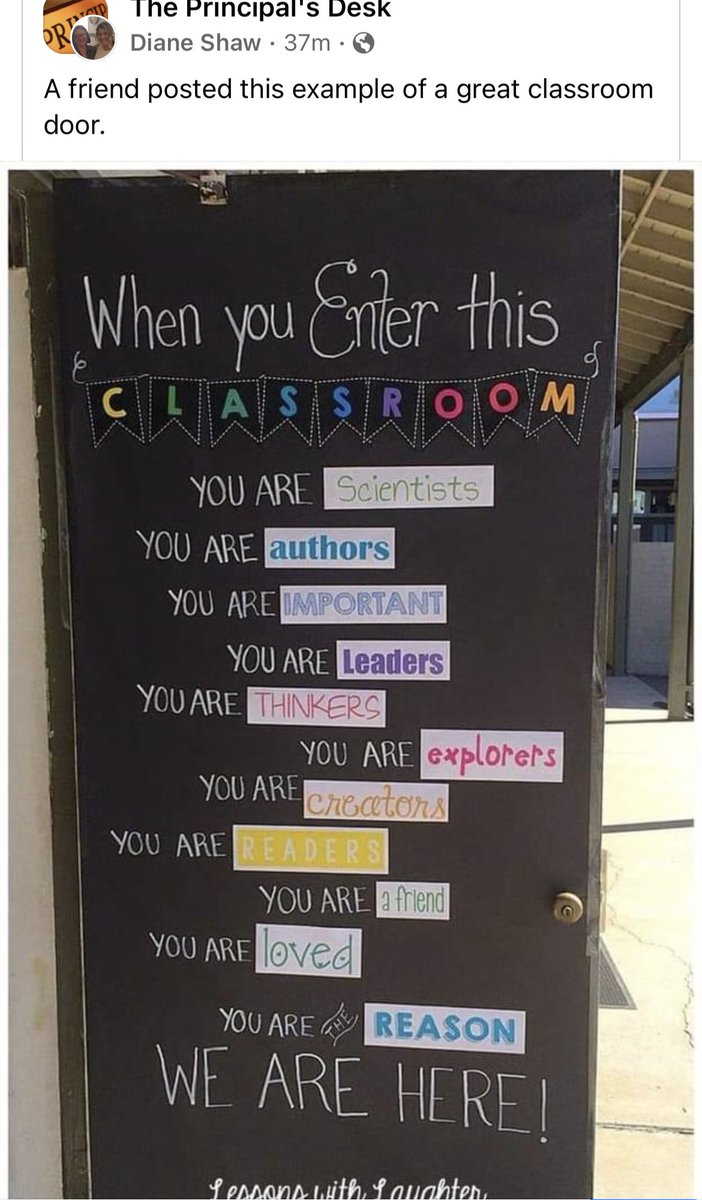 The Principal's Desk
Diane Shaw · 37m ·
A friend posted this example of a great classroom
door.
When you Enter this
CLASSROOM
YOU ARE Scientists
YOU ARE authors
YOU ARE IMPORTANT
YOU ARE Leaders
YOU ARE THINKERS
YOU ARE explorers
YOU ARE creators
YOU ARE READERS
YOU ARE a friend
YOU ARE loved
YOU ARE THE REASON
WE ARE HERE!
Lessons with Laughter